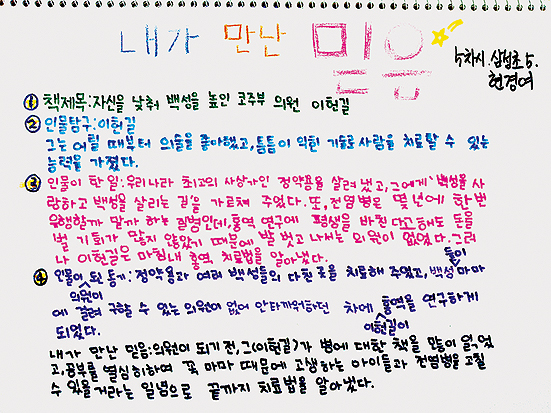 내가 만난 믿음
5차시. 삼성초 5.
현경여
① 책제목:자신을 낮춰 백성을 높인 코주부 의원 이헌길
② 인물탐구:이헌길
그는 어릴 때부터 의술을 좋아했고, 틈틈이 익힌 기술로 사람을 치료할 수 있는
능력을 가졌다.
③ 인물이 한 일:우리나라 최고의 사상가인 정약용을 살려 냈고, 그에게 '백성을 사
랑하고 백성을 살리는 길'을 가르쳐 주었다. 또, 전염병은 몇 년에 한 번
유행할까 말까 하는 질병인데, 홍역 연구에 평생을 바친다고 해도 돈을
벌 기회가 많지 않았기 때문에 발 벗고 나서는 의원이 없었다. 그러
나 이헌길은 마침내 홍역 치료법을 알아냈다.
④ 인물이 의원이 된 동기: 정약용과 여러 백성들의 다친 곳을 치료해 주었고, 백성들이 마마
에 걸려 구할 수 있는 의원이 없어 안타까워하던 차에 이헌길이 홍역을 연구하게
되었다.
내가 만난 믿음:의원이 되기 전, 그(이헌길)가 병에 대한 책을 많이 읽었
고, 공부를 열심히 하여 꼭 마마 때문에 고생하는 아이들과 전염병을 고칠
수 있을거라는 일념으로 끝까지 치료법을 알아냈다.